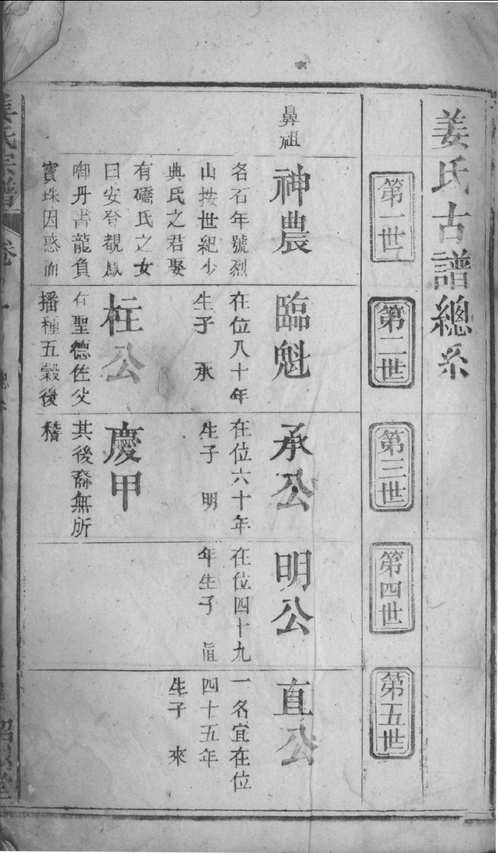 姜氏古譜總系
第一世
第二世
第三世
第四世
第五世
鼻祖
神農
名石年號烈
山按世紀少
典氏之君娶
有蟜氏之女
曰安登覩
啣丹書龍負
寶珠因感而
臨魁
在位八十年
生子承
柱公
有聖德佐父
播種五穀後
承公
在位六十年
生子明
慶甲
其後裔無所
稽
明公
在位四十九
年生子
直公
一名宜在位
四十五年
生子來
姜氏宗譜
卷